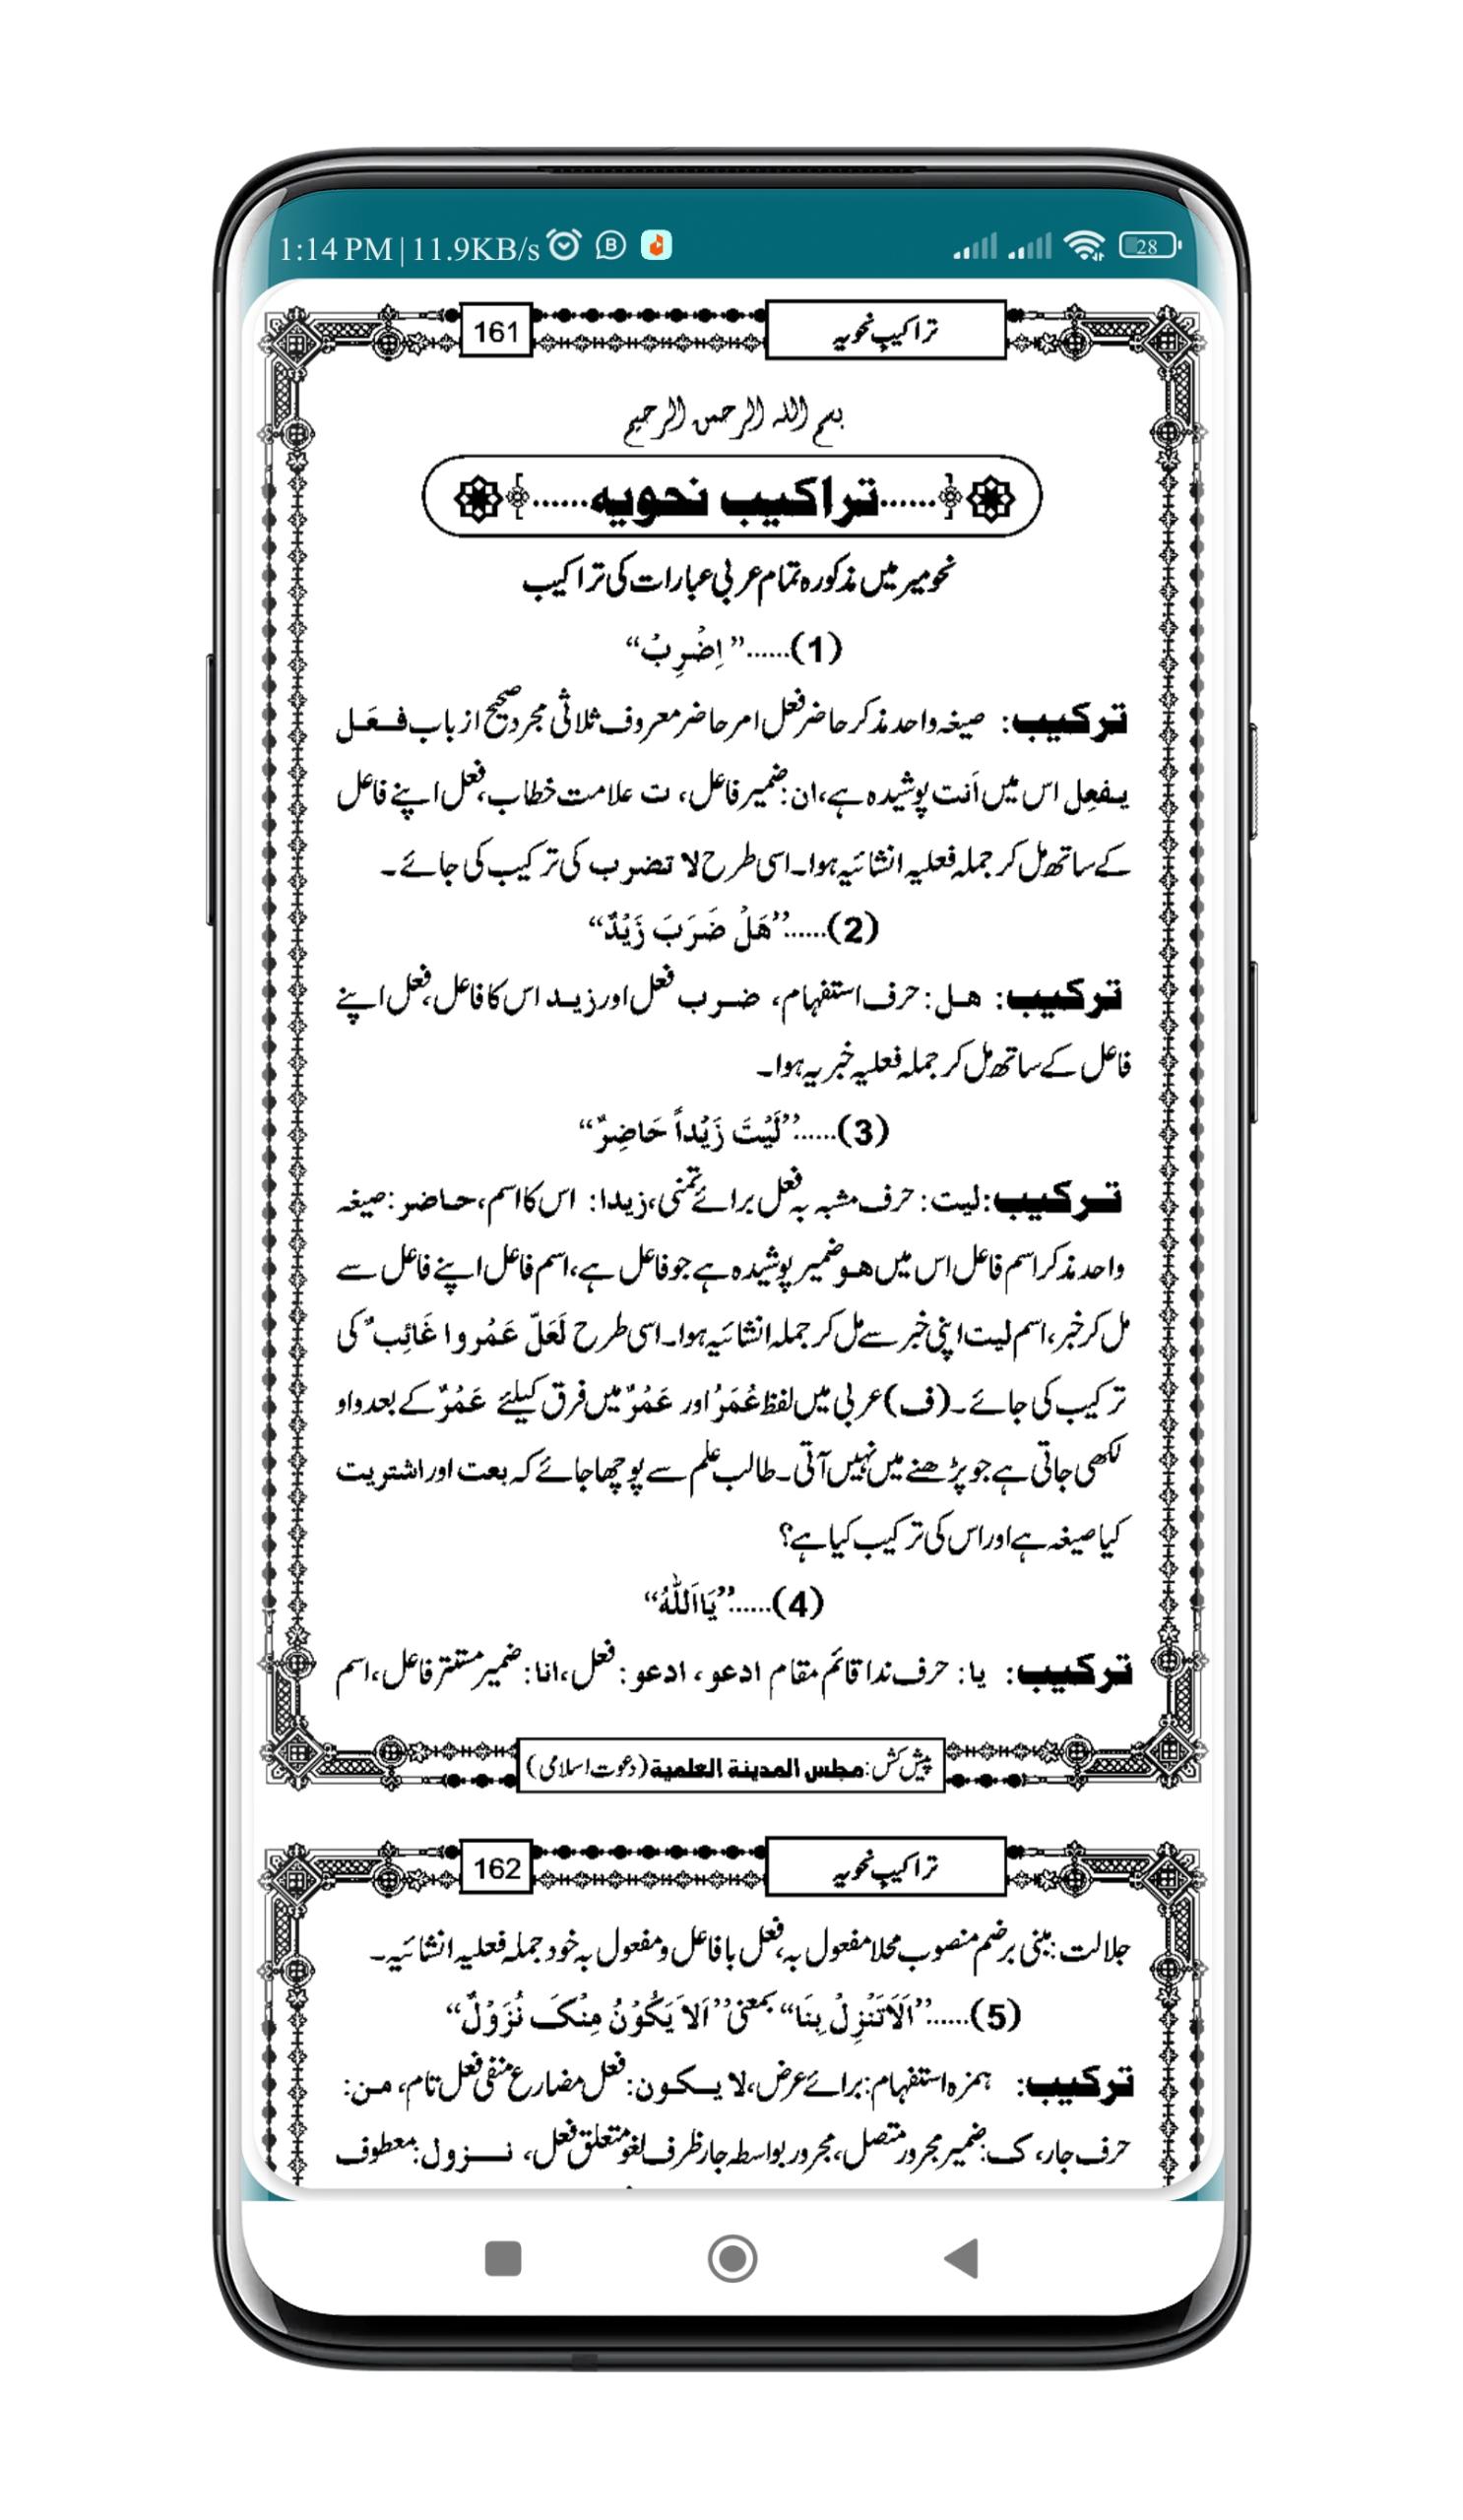 1:14 PM | 11.9KB/s
28
161
تراکیب نحویہ
بسم اللہ الرحمن الرحیم
......تراكيب نحويه......
نحومیر میں مذکورہ تمام عربی عبارات کی تراکیب
(1)......”اِضْرِبْ“
ترکیب: صیغہ واحد مذکر حاضر فعل امر حاضر معروف ثلاثی مجرد صحیح از باب فـعَـل
یـفعِل اس میں اَنت پوشیدہ ہے،ان:ضمیر فاعل، ت علامت خطاب،فعل اپنے فاعل
کے ساتھ مل کر جملہ فعلیہ انشائیہ ہوا۔اسی طرح لا تضرب کی ترکیب کی جائے۔
(2)......”هَلْ ضَرَبَ زَيْدٌ“
ترکیب: هـل: حرف استفہام، ضـرب فعل اور زیـد اس کا فاعل،فعل اپنے
فاعل کے ساتھ مل کر جملہ فعلیہ خبریہ ہوا۔
(3)......”لَيْتَ زَيْداً حَاضِرٌ“
ترکیب:لیت: حرف مشبہ بہ فعل برائے تمنی،زیدا: اس کا اسم،حـاضر:صیغہ
واحد مذکر اسم فاعل اس میں هـو ضمیر پوشیدہ ہے جو فاعل ہے،اسم فاعل اپنے فاعل سے
مل کر خبر،اسم لیت اپنی خبر سے مل کر جملہ انشائیہ ہوا۔اسی طرح لَعَلّ عَمْروا غَائِبٌ کی
ترکیب کی جائے۔(ف)عربی میں لفظ عُمَرُ اور عَمْرٌ میں فرق کیلئے عَمْرٌ کے بعد واو
لکھی جاتی ہے جو پڑھنے میں نہیں آتی۔طالب علم سے پوچھا جائے کہ بعت اور اشتریت
کیا صیغہ ہے اور اس کی ترکیب کیا ہے؟
(4)......”يَااَللّٰهُ“
ترکیب: یا: حرف ندا قائم مقام ادعو، ادعو: فعل،انا: ضمیر مستتر فاعل،اسم
پیش کش:مجلس المدينة العلمية (دعوت اسلامی)
162
تراکیب نحویہ
جلالت :مبنی بر ضم منصوب محلا مفعول بہ،فعل با فاعل و مفعول بہ خود جملہ فعلیہ انشائیہ۔
(5)......”اَلَاتَنْزِلُ بِنَا“ بمعنی ”اَلاَ يَكُوْنُ مِنْكَ نُزَوْلٌ“
ترکیب: ہمزہ استفہام:برائے عرض،لا یـکـون:فعل مضارع منفی فعل تام، مـن:
حرف جار، ک:ضمیر مجرور متصل،مجرور بواسطہ جار ظرف لغو متعلق فعل، نـــزول:معطوف